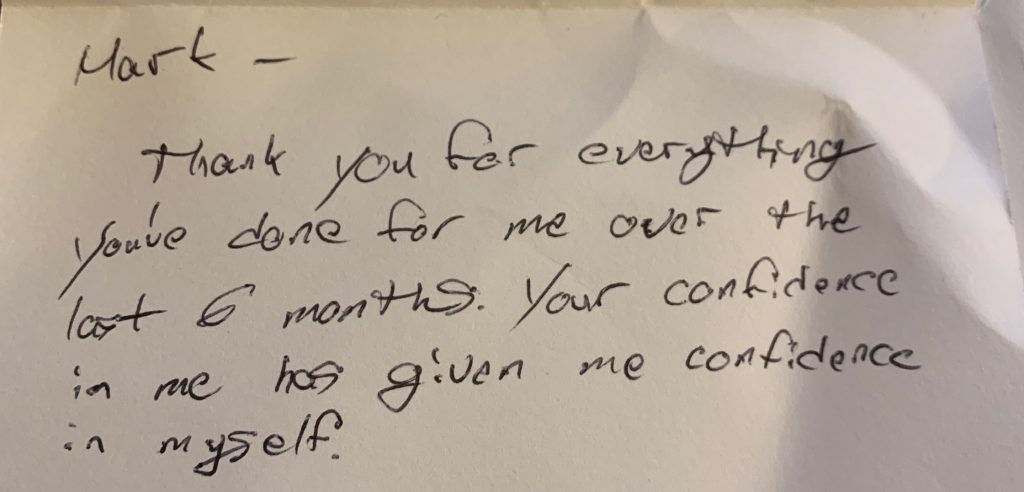 Mark –
Thank you for everything
you've done for me over the
last 6 months. Your confidence
in me has given me confidence
in myself.